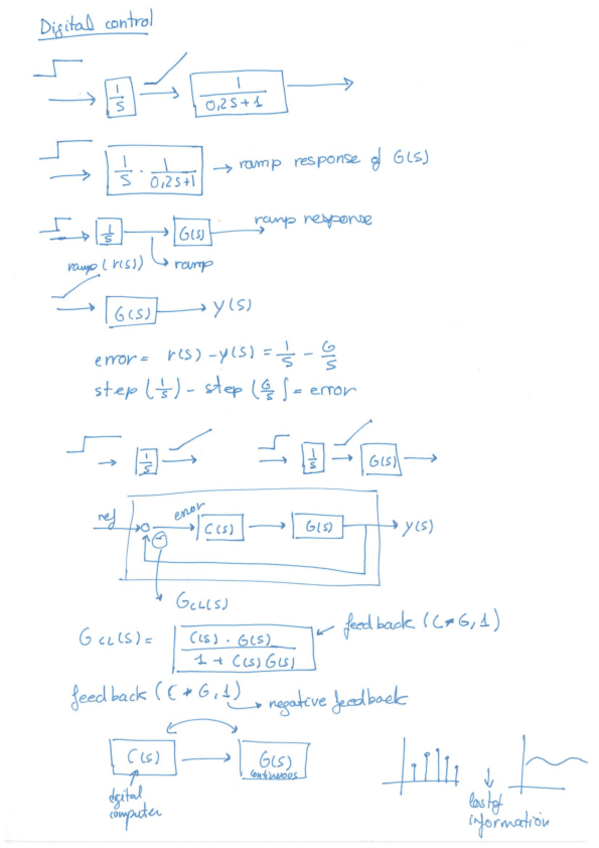 Digital control
1/S 1/(0,2S+1)
1/S · 1/(0,2S+1) → ramp response of G(S)
1/S G(S) ramp response
ramp (r(s)) ramp
G(S) → y(s)
error = r(s) - y(s) = 1/S - G/S
step (1/S) - step (G/S) = error
1/S 1/S G(S)
ref error C(S) G(S) y(s)
-
GCL(S)
GCL(S) = C(S) · G(S) / 1 + C(S)G(S) feedback (C*G,1)
feedback (C*G,1) → negative feedback
C(S) → G(S)
continuous
digital
computer
lost of
information